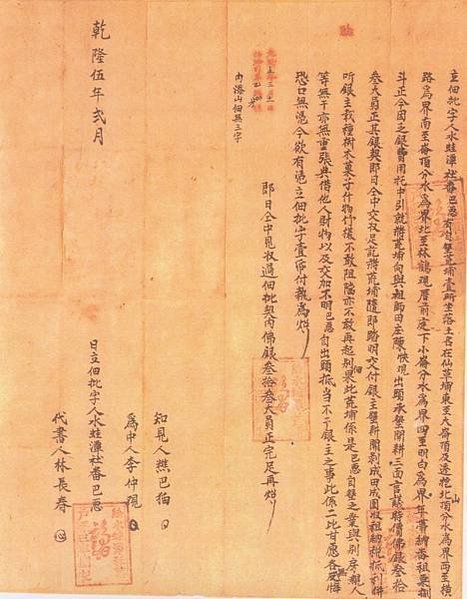 立佃批字人水蛙潭社番巴愿有自墾荒埔壹所坐落土名在仙草埔東至大崙頂及透挖山北頂分水為界西至橫
路為界南至崙頂分水為界北至林鶴現厝前庭下小崙分水為界四至明白為界年帶納番租粟捌
斗正今因乏銀費用托中引就將荒埔向與祖師田庄陳現出頭承墾開耕三面言議時價佛銀叁拾
叁大員正其銀契即日仝中交收足訖將荒埔隨即踏明交付銀主墾耕開剥成田成園收租納粃抵利併
听銀主栽種樹木菓子什物作樣不敢阻隔亦不敢再起別佃此荒埔係是巴愿自墾之業與別房親人
等無干亦無重張典借他人財物以及交加不明巴愿自出頭抵當不干銀主之事此係二比甘愿各無反悔
恐口無憑今欲有憑立佃批字壹帋付執為炤
即日仝中見收過佃批契內佛銀叁拾叁大員正完足再炤
內添山佃無三字
知見人巴
為中人李仲現
日立佃批字人水蛙潭社番巴愿
代書人林長春
乾隆伍年弍月